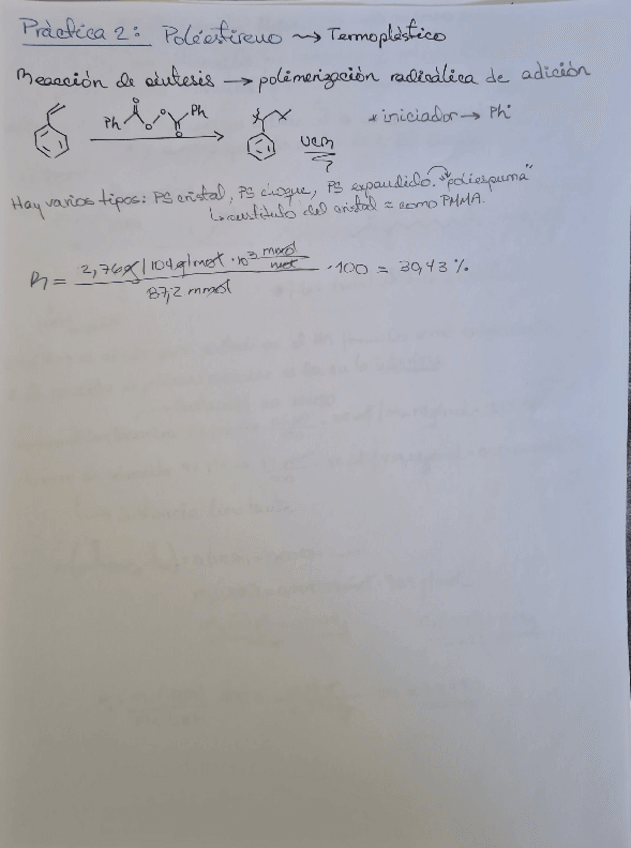 Práctica 2: Poliestireno ⟿ Termoplástico
Reacción de síntesis → polimerización radicálica de adición
Ph O O O O Ph
* iniciador → Ph·
UCM
?
Hay varios tipos: PS cristal, PS choque, PS expandido. "poliespuma"
↳ sustituto del cristal ≈ como PMMA.
R = 2,76g / 104 g/mol · 10³ mmol/mol / 87,2 mmol · 100 = 30,43 %